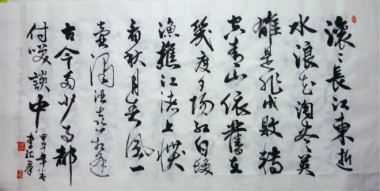 滚滚长江東逝
水浪花淘尽英
雄是非成敗轉
空青山依舊在
幾度夕陽红白髮
漁樵江渚上慣
看秋月春風一
壺濁酒喜相逢
古今多少事都
付笑談中